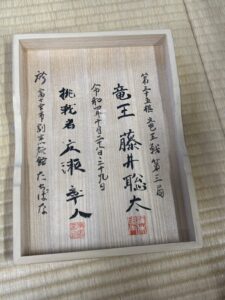 第三十五期 竜王戦 第三局
竜王 藤井聡太
令和四年十月二十八日・二十九日
挑戦者 広瀬章人
於 富士宮市割烹旅館 たちばな